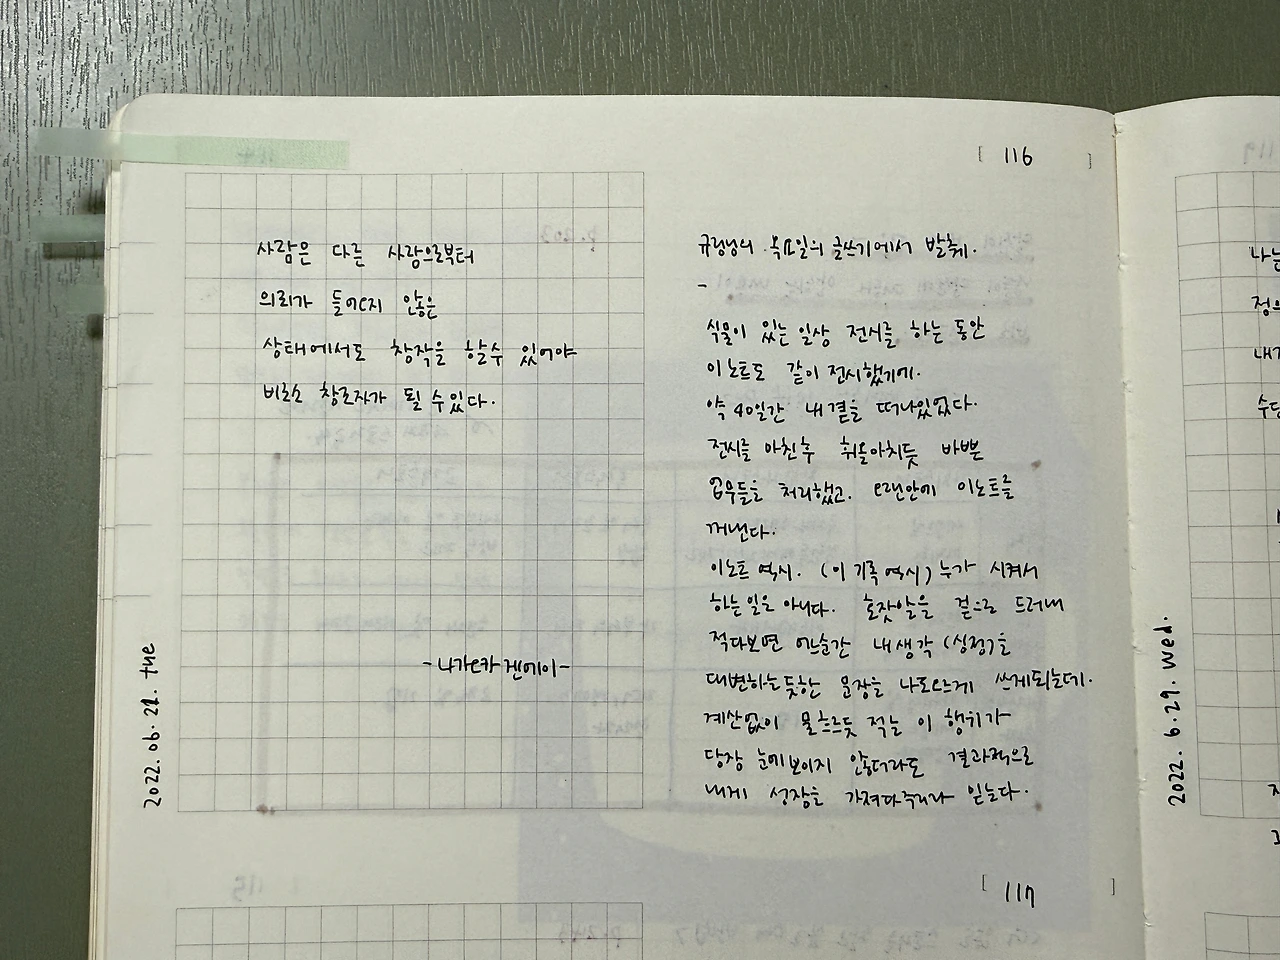 [ 116 ]
사람은 다른 사람으로부터
의뢰가 들어오지 않은
상태에서도 창작을 할수 있어야
비로소 창조자가 될 수 있다.
- 나가오카 겐메이 -
2022. 06. 21. tue
규림님의 목요일의 글쓰기에서 발췌.
-
식물이 있는 일상 전시를 하는 동안
이 노트도 같이 전시했기에.
약 40일간 내 곁을 떠나있었다.
전시를 마친후 휘몰아치듯 바쁜
업무들을 처리했고. 오랜만에 이노트를
꺼낸다.
이노트 역시. (이 기록 역시) 누가 시켜서
하는 일은 아니다. 혼잣말을 겉으로 드러내
적다보면 어느순간 내 생각 (심정)을
대변하는듯한 문장을 나도모르게 쓰게되는데.
계산없이 물 흐르듯 적는 이 행위가
당장 눈에 보이지 않더라도 결과적으로
내게 성장을 가져다주리라 믿는다.
[ 117 ]
2022. 6. 29. wed.
나는
정의
내가
수당